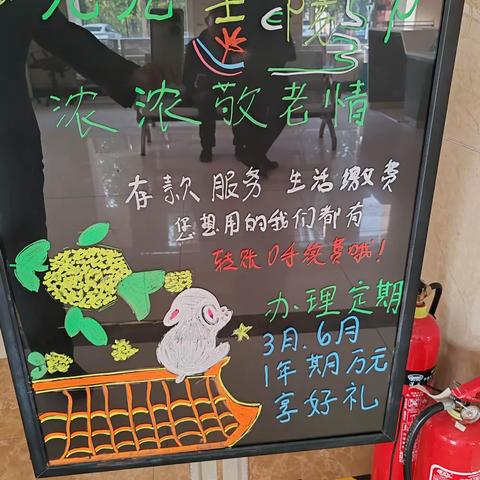 浓浓敬老情
存款 服务 生活缴费
您想用的我们都有
转账0手续费哦！
办理定期
3月.6月
1年期万元
享好礼